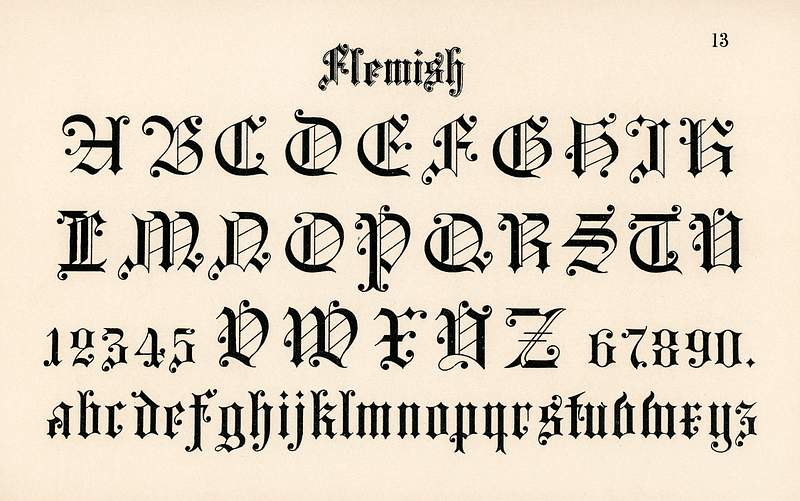 13
Flemish
A B C D E F G H I K
L M N O P Q R S T U
12345 V W X Y Z 67890.
abcdefghijklmnopqrstuvwxyz